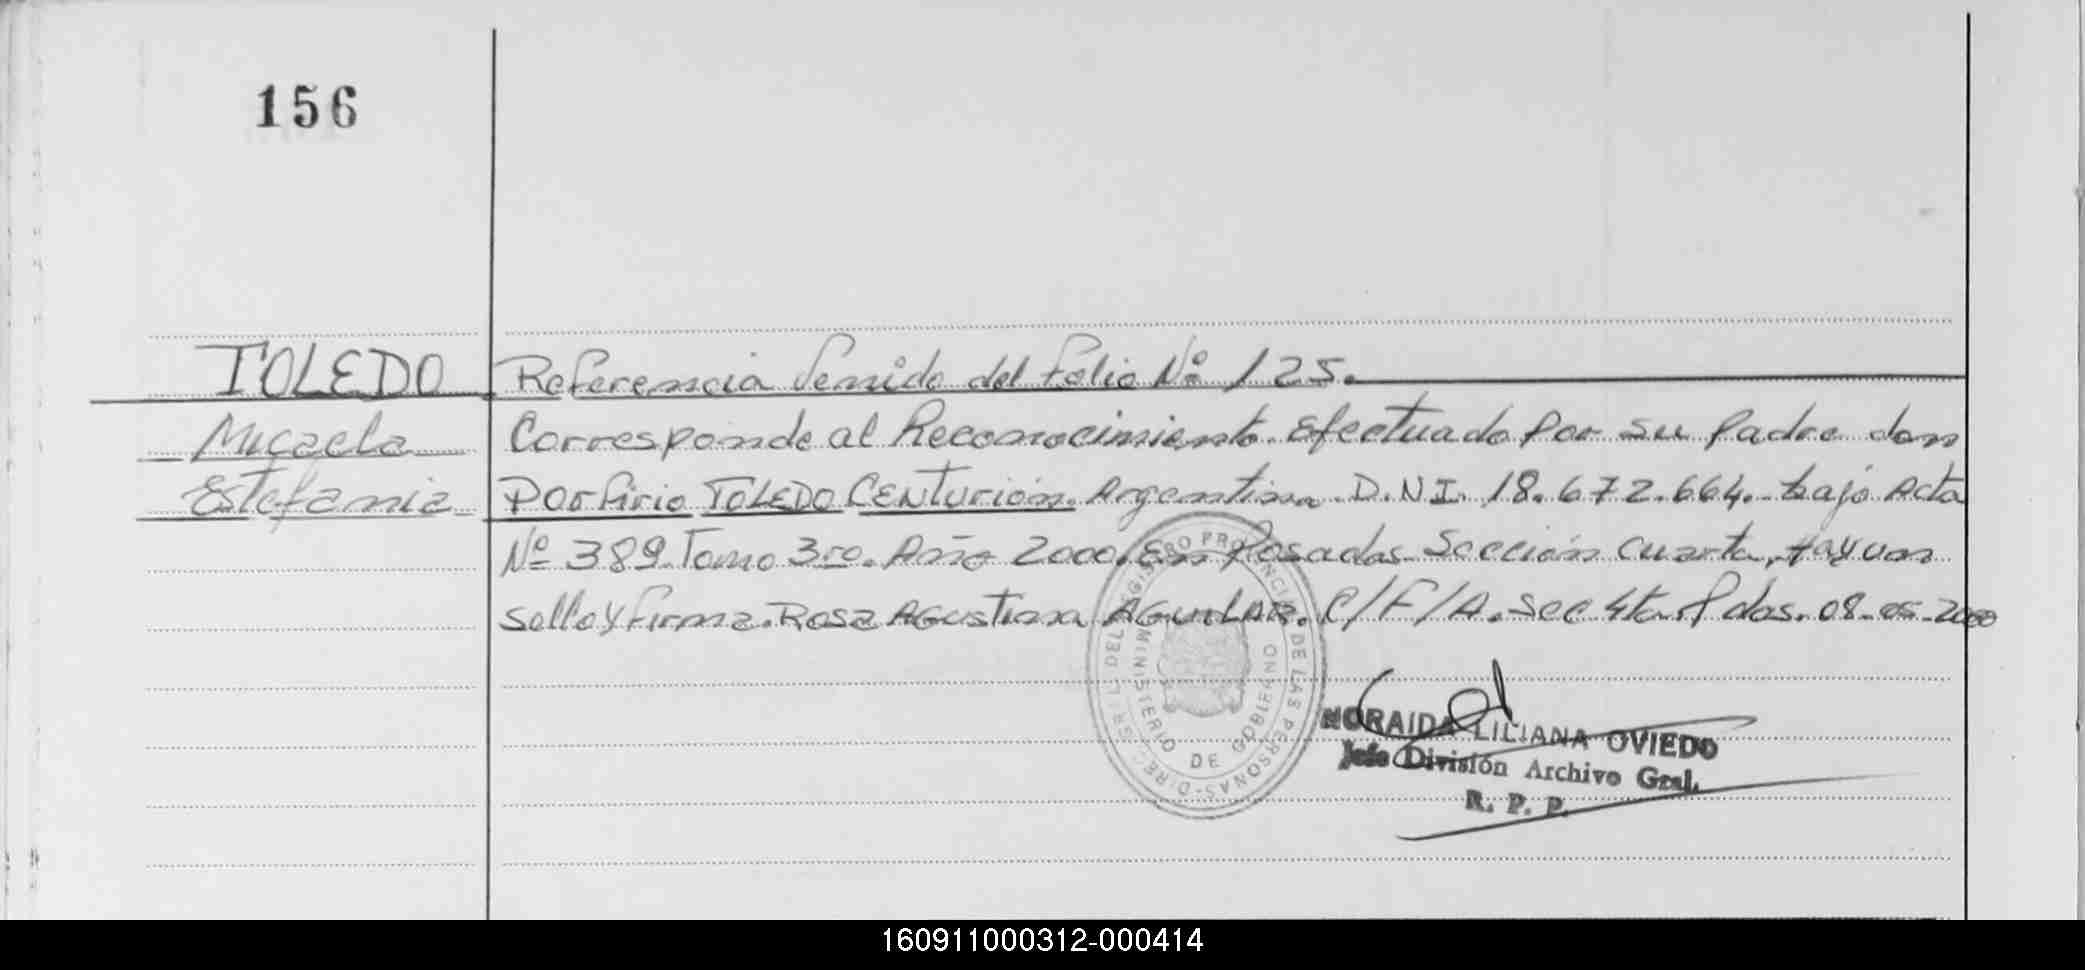 156
TOLEDO
Micaela
Estefania
Referencia Venida del Folio Nº 125.
Corresponde al Reconocimiento. Efectuado Por su Padre don
Porfirio TOLEDO CENTurión. Argentino. D.N.I. 18.672.664. bajo Acta
Nº 389. Tomo 3ro. Año 2000. En Posadas Sección Cuarta, Hay un
sello y firma. Rosa AGustina AGuiLAR. C/F/A. Sec 4ta. Pdas. 08-05-2000
DIREC. GRAL. DEL REGISTRO PROVINCIAL DE LAS PERSONAS
MINISTERIO DE GOBIERNO
NORAIDA LILIANA OVIEDO
Jefe División Archivo Gral.
R. P. P.
160911000312-000414